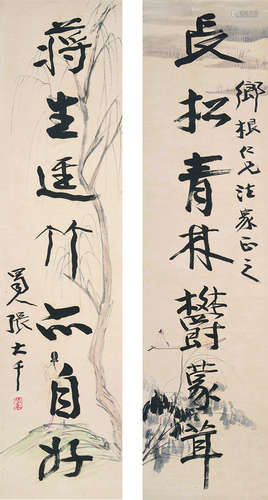 長松青林欝蒙茸
鄉根仁兄法家正之
蔣生逕竹亦自好
蜀人張大千